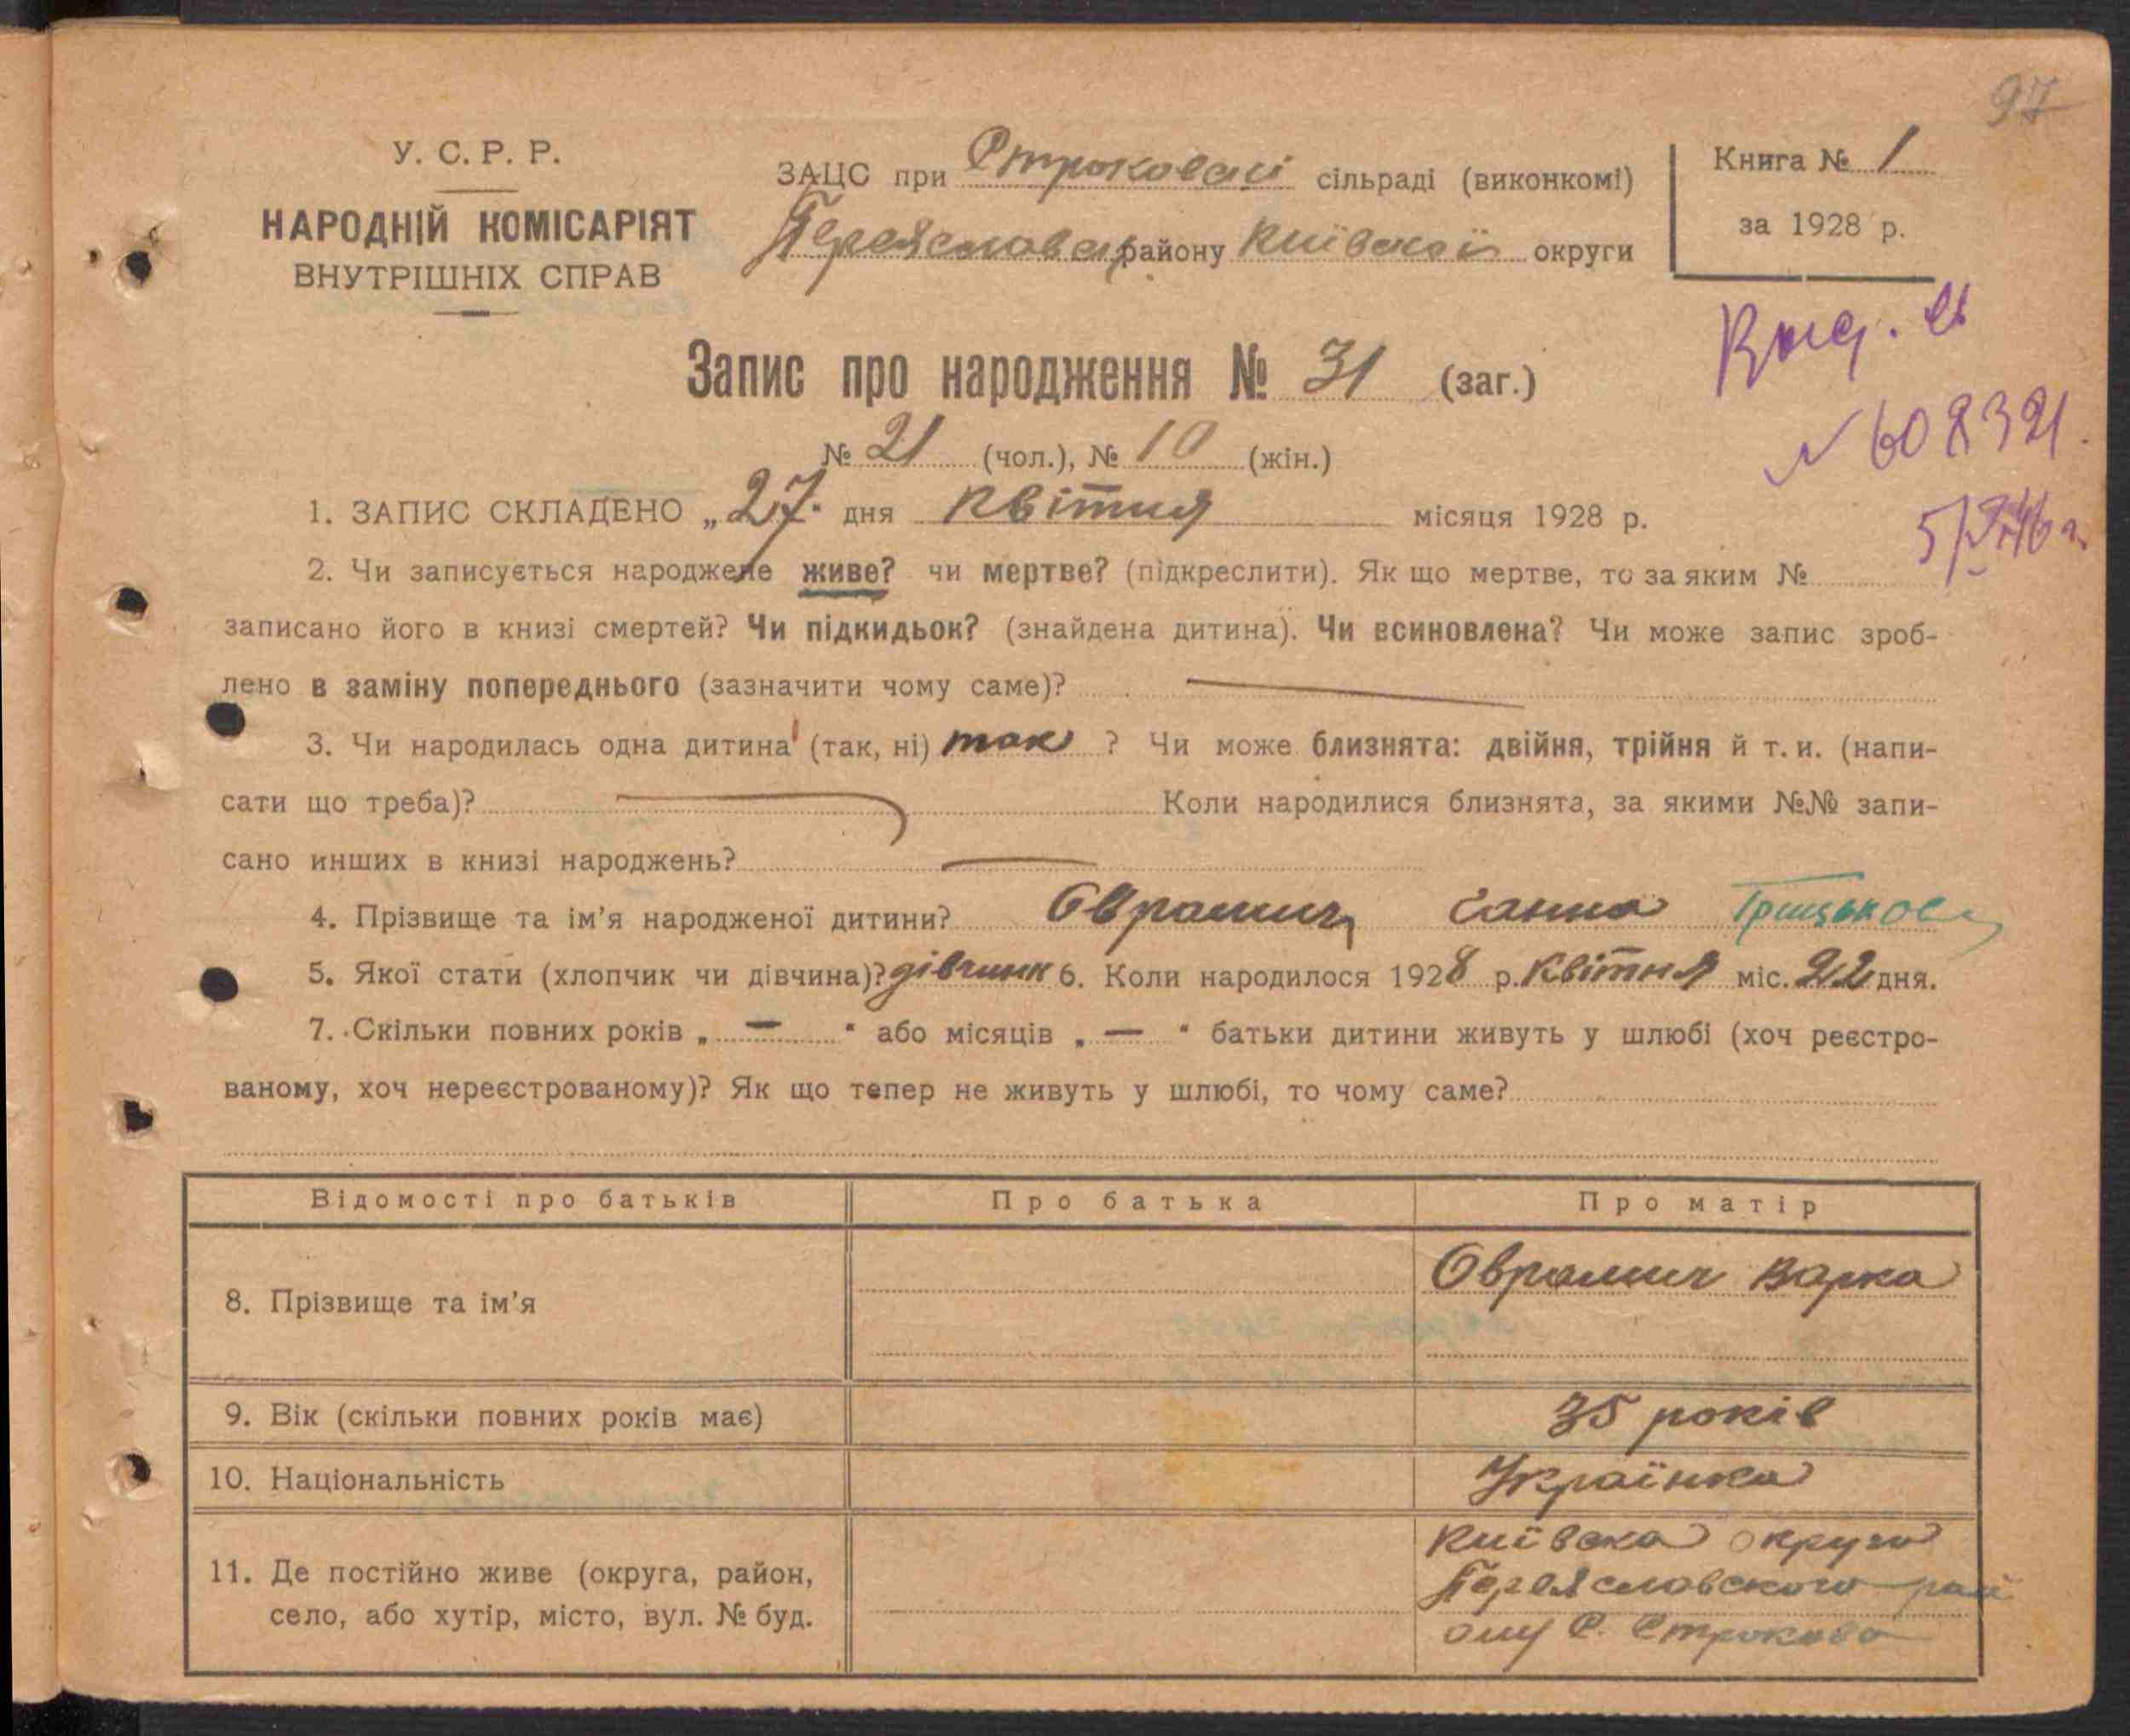 97
У. С. Р. Р.
НАРОДНІЙ КОМІСАРІЯТ
ВНУТРІШНІХ СПРАВ
ЗАЦС при Строковскі сільраді (виконкомі)
Переяславськ району Київської округи
Книга № 1
за 1928 р.
Запис про народження № 31 (заг.)
№ 21 (чол.), № 10 (жін.)
№ 608321
1. ЗАПИС СКЛАДЕНО „27“ дня квітня місяця 1928 р.
2. Чи записується народжене живе? чи мертве? (підкреслити). Як що мертве, то за яким №
записано його в книзі смертей? Чи підкидьок? (знайдена дитина). Чи всиновлена? Чи може запис зроб-
лено в заміну попереднього (зазначити чому саме)? —
3. Чи народилась одна дитина (так, ні) так ? Чи може близнята: двійня, трійня й т. и. (напи-
сати що треба)? — Коли народилися близнята, за якими №№ запи-
сано инших в книзі народжень? —
4. Прізвище та ім’я народженої дитини?Оврамич Ганна Грицьков
5. Якої стати (хлопчик чи дівчина)? дівчинк 6. Коли народилося 1928 р. Квітня міс. 22 дня.
7. Скільки повних років „ — “ або місяців „ — “ батьки дитини живуть у шлюбі (хоч реєстро-
ваному, хоч нереєстрованому)? Як що тепер не живуть у шлюбі, то чому саме?
Відомості про батьків Про батька Про матір
8. Прізвище та ім’я Оврамич Варка
9. Вік (скільки повних років має) 35 років
10. Національність Українка
11. Де постійно живе (округа, район,
село, або хутір, місто, вул. № буд.
Київска округа
Переяславского рай
ону С. Строкова